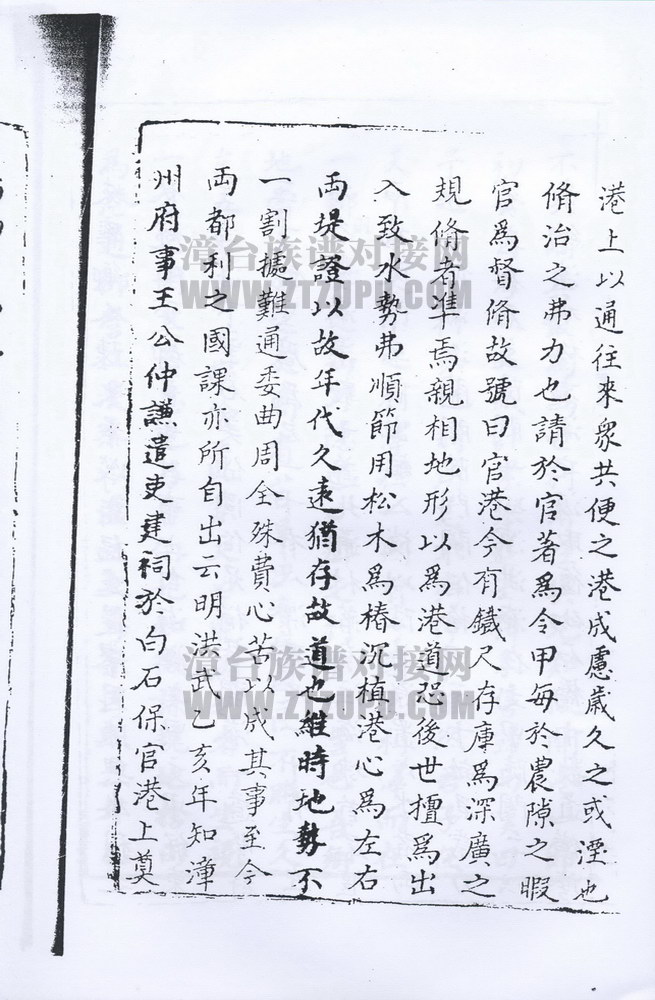 港上以通往來衆共便之港成慮歲久之或湮也
脩治之弗力也請於官著爲令甲每於農隙之暇
官爲督脩故號曰官港今有鐵尺存庫爲深廣之
規脩者準焉親相地形以爲港道恐後世擅爲出
入致水勢弗順節用松木爲樁沉植港心爲左右
両堤證以故年代久遠猶存故道也維時地勢不
一割據難通委曲周全殊費心苦以成其事至今
両都利之國課亦所自出云明洪武乙亥年知漳
州府事王公仲謙遣吏建祠於白石保官港上奠
漳台族谱对接网
WWW.ZTZUPU.COM
漳台族谱对接网
WWW.ZTZUPU.COM